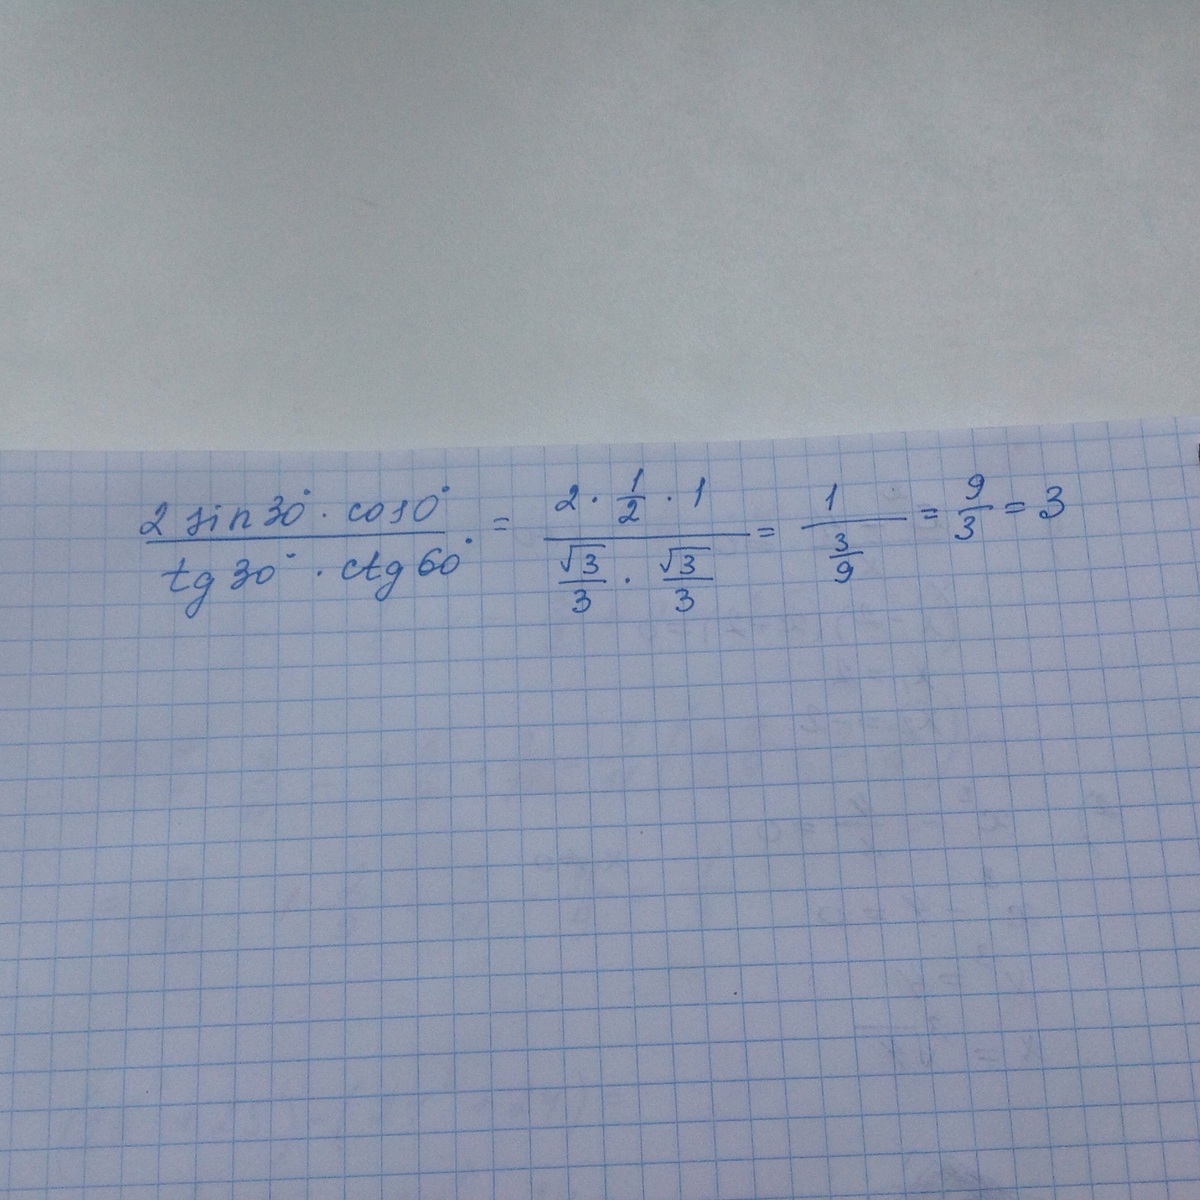 2 sin 30° · cos 0° / tg 30° · ctg 60° = 2 · 1/2 · 1 / √3/3 · √3/3 = 1 / 3/9 = 9/3 = 3